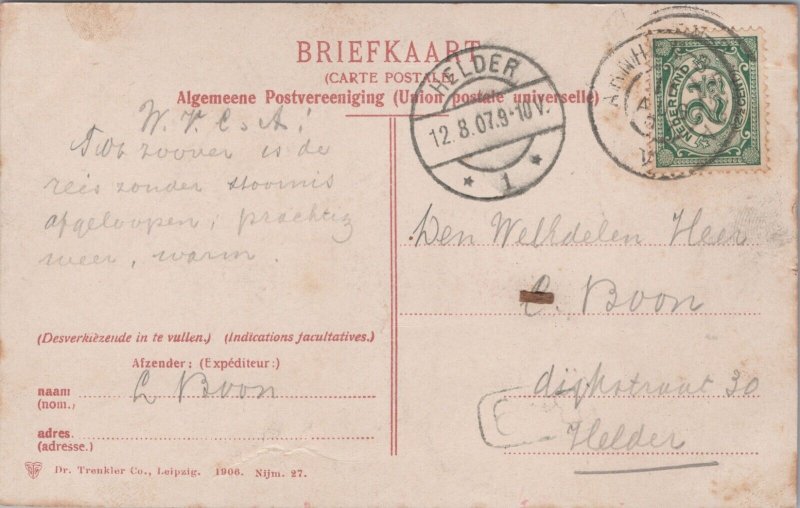 BRIEFKAART
(CARTE POSTALE)
Algemeene Postvereeniging (Union postale universelle)
HELDER
12.8.07.9-10V.
1
ARNH
NEDERLAND
2½
W. V. C. & A!
Tot zoover is de
reis zonder stoornis
afgeloopen; prachtig
weer, warm.
(Desverkiezende in te vullen.) (Indications facultatives.)
Afzender: (Expéditeur:)
naam
(nom.)
L Boon
adres.
(adresse.)
Dr. Trenkler Co., Leipzig. 1906. Nijm. 27.
Den WelEdelen Heer
C. Boon
dijkstraat 30
Helder